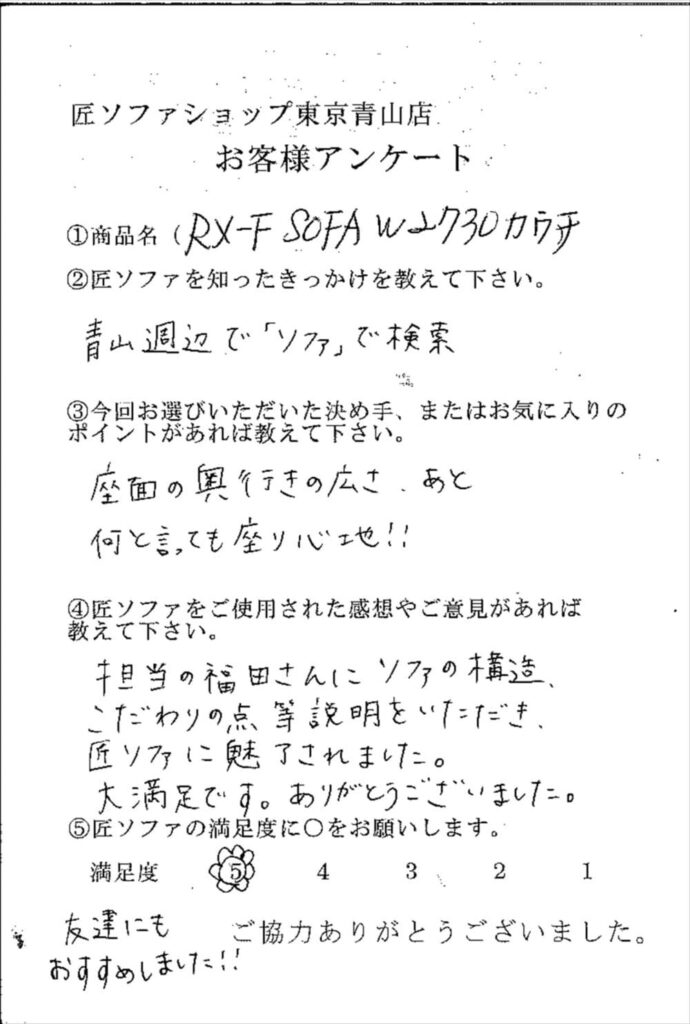 匠ソファショップ東京青山店
お客様アンケート
①商品名（RX-F SOFA W2730カウチ
②匠ソファを知ったきっかけを教えて下さい。
青山週辺で「ソファ」で検索
③今回お選びいただいた決め手、またはお気に入りの
ポイントがあれば教えて下さい。
座面の奥行きの広さ、あと
何と言っても座り心地!!
④匠ソファをご使用された感想やご意見があれば
教えて下さい。
担当の福田さんにソファの構造、
こだわりの点等説明をいただき、
匠ソファに魅了されました。
大満足です。ありがとうございました。
⑤匠ソファの満足度に○をお願いします。
満足度 5 4 3 2 1
友達にも
おすすめしました!!
ご協力ありがとうございました。